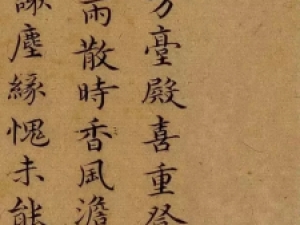 臺殿喜重登
雨散時香風澹
塵緣愧未能